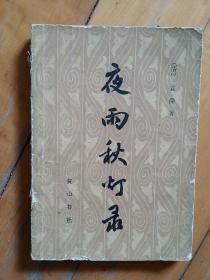 夜雨秋灯录
〔清〕宣鼎 著
黄山书社